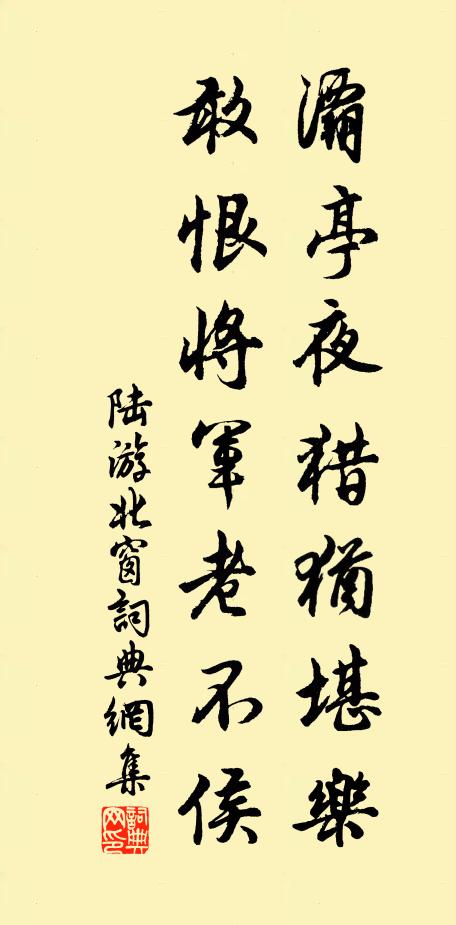 灞亭夜猎猶堪樂
敢恨将軍老不侯
陆游北窗詞典網集
詞典网印